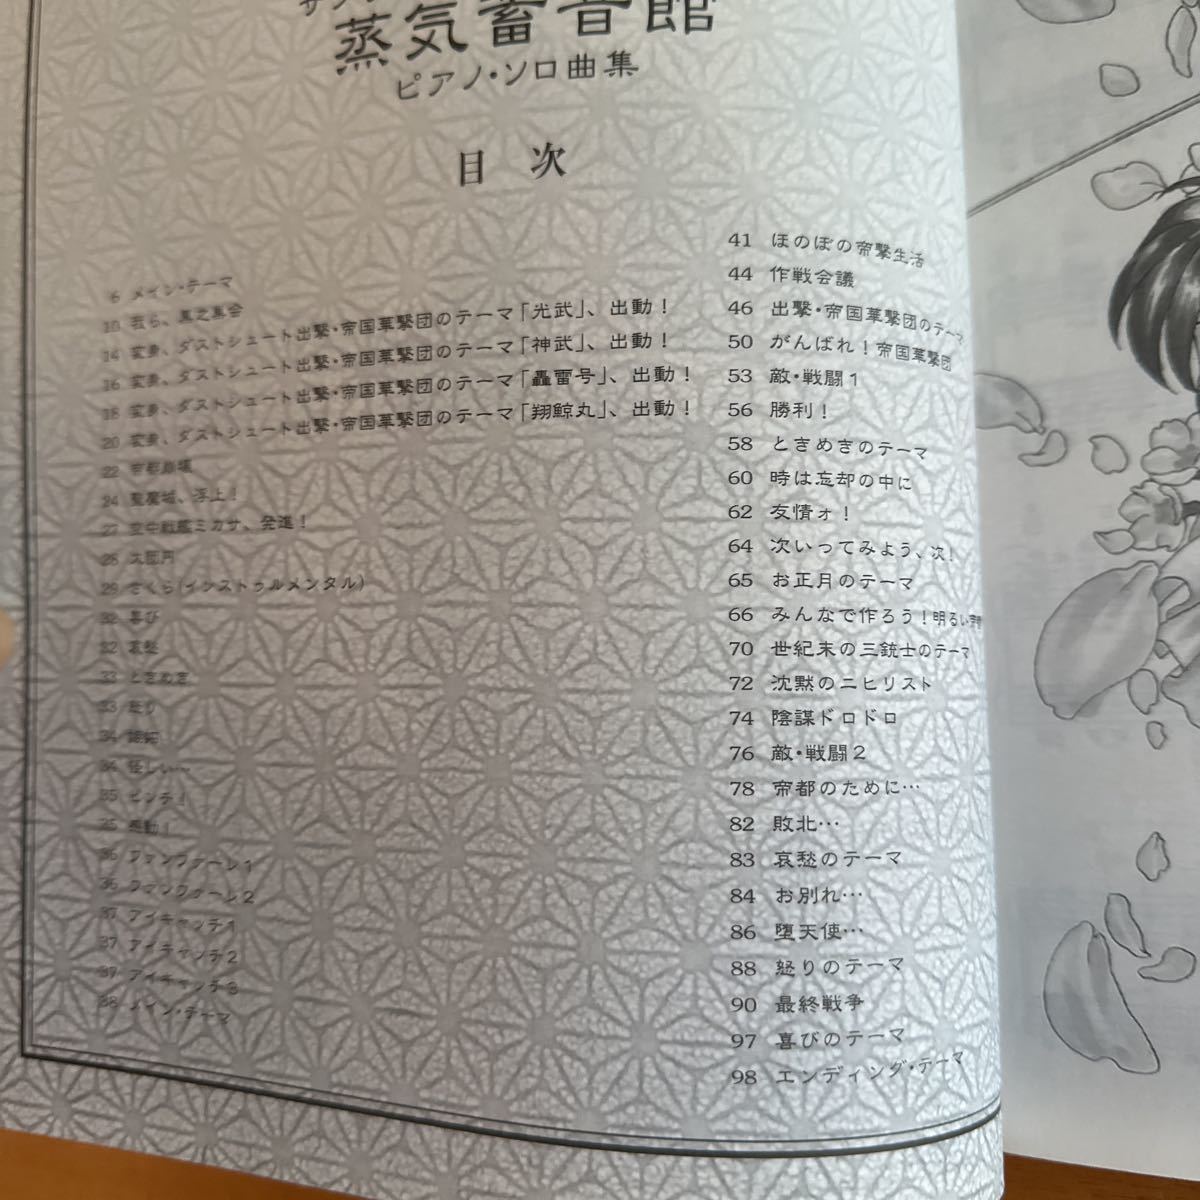 蒸気蓄音館
ピアノ・ソロ曲集
目次
6 メイン・テーマ
10 我ら、黒之巣会
14 変身、ダストシュート出撃・帝国華撃団のテーマ「光武」、出動！
16 変身、ダストシュート出撃・帝国華撃団のテーマ「神武」、出動！
18 変身、ダストシュート出撃・帝国華撃団のテーマ「轟雷号」、出動！
20 変身、ダストシュート出撃・帝国華撃団のテーマ「翔鯨丸」、出動！
22 帝都崩壊
24 聖魔城、浮上！
27 空中戦艦ミカサ、発進！
28 大団円
29 さくら(インストゥルメンタル)
32 喜び
32 哀愁
33 ときめき
33 怒り
34 嫉妬
34 怪しい〜
35 ピンチ！
35 感動！
36 ファンファーレ1
36 ファンファーレ2
37 アイキャッチ1
37 アイキャッチ2
37 アイキャッチ3
38 メイン・テーマ
41 ほのぼの帝撃生活
44 作戦会議
46 出撃・帝国華撃団のテーマ
50 がんばれ！帝国華撃団
53 敵・戦闘1
56 勝利！
58 ときめきのテーマ
60 時は忘却の中に
62 友情ォ！
64 次いってみよう、次！
65 お正月のテーマ
66 みんなで作ろう！明るい
70 世紀末の三銃士のテーマ
72 沈黙のニヒリスト
74 陰謀ドロドロ
76 敵・戦闘2
78 帝都のために…
82 敗北…
83 哀愁のテーマ
84 お別れ…
86 堕天使…
88 怒りのテーマ
90 最終戦争
97 喜びのテーマ
98 エンディング・テーマ